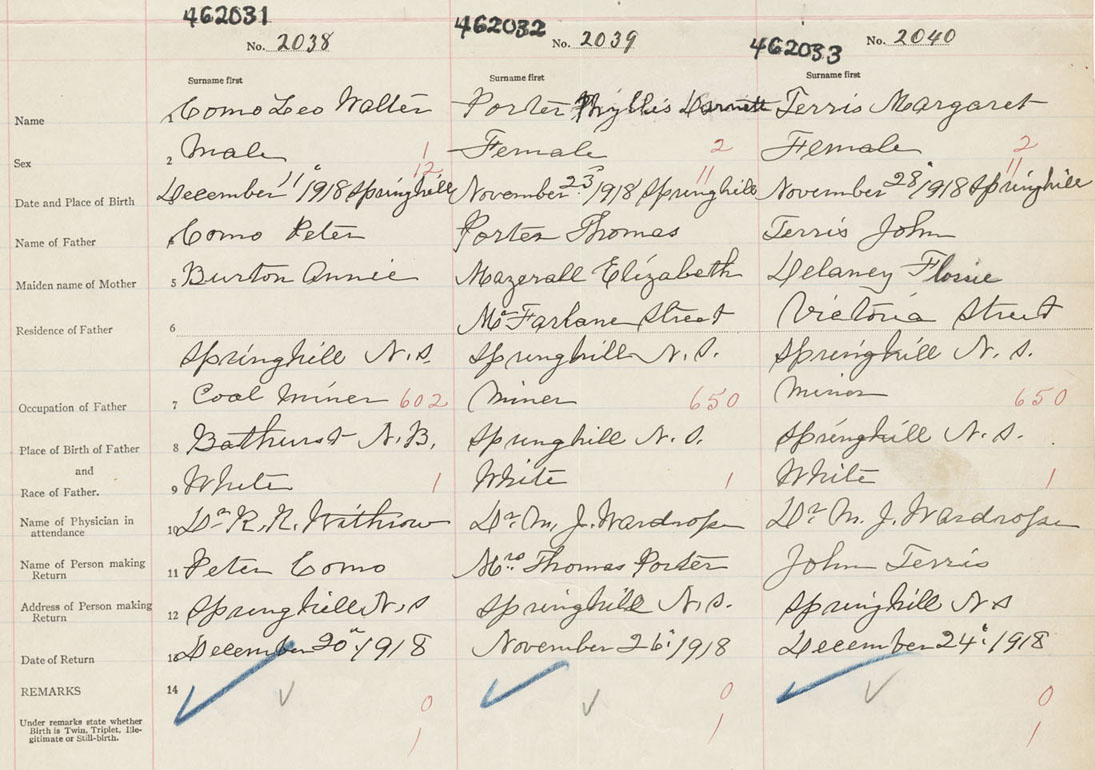 462031 462032 462033
No. 2038 No. 2039 No. 2040
Surname first Surname first Surname first
Name 1 Como Leo Walter Porter Phyllis Terris Margaret
Sex 2 Male 1 Female 2 Female 2
12 11 11
Date and Place of Birth December 11" 1918 Springhill November 23" 1918 Springhill November 28" 1918 Springhill
Name of Father Como Peter Porter Thomas Terris John
Maiden name of Mother 5 Burton Annie Mazerall Elizabeth Delaney Flossie
Residence of Father 6 McFarlane Street Victoria Street
Springhill N.S. Springhill N.S. Springhill N.S.
Occupation of Father 7 Coal Miner 602 Miner 650 Minor 650
Place of Birth of Father 8 Bathurst N.B. Springhill N.S. Springhill N.S.
and
Race of Father. 9 White 1 White 1 White 1
Name of Physician in
attendance 10 Dr R. N. Withrow Dr M. J. Wardrope Dr M. J. Wardrope
Name of Person making
Return 11 Peter Como Mrs Thomas Porter John Terris
Address of Person making
Return 12 Springhill N.S Springhill N.S. Springhill N.S
Date of Return 13 December 20" 1918 November 26" 1918 December 24" 1918
REMARKS 14 0 0 0
Under remarks state whether
Birth is Twin, Triplet, Ille-
gitimate or Still-birth. 1 1 1